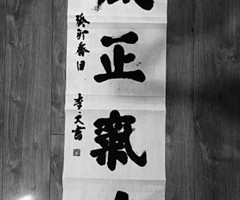 正氣
癸卯春日
李文書